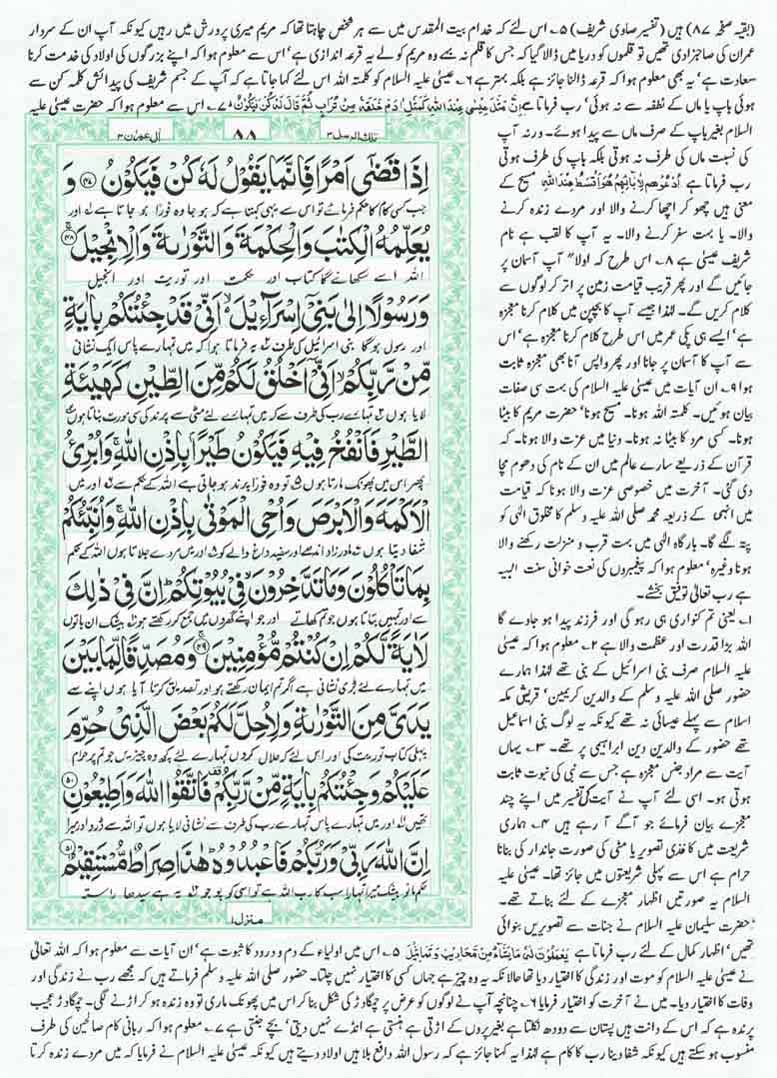 (بقیہ صفحہ ۸۷) ہیں (تفسیر صاوی شریف) ۵۔ اس لئے کہ خدام بیت المقدس میں سے ہر شخص چاہتا تھا کہ مریم میری پرورش میں رہیں کیونکہ آپ ان کے سردار
عمران کی صاحبزادی تھیں تو قلموں کو دریا میں ڈالا گیا کہ جس کا قلم نہ بہے وہ مریم کو لے یہ قرعہ اندازی ہے' اس سے معلوم ہوا کہ اپنے بزرگوں کی اولاد کی خدمت کرنا
سعادت ہے' یہ بھی معلوم ہوا کہ قرعہ ڈالنا جائز ہے بلکہ بہتر ہے ۶۔ عیسیٰ علیہ السلام کو کلمتہ اللہ اس لئے کہا جاتا ہے کہ آپ کے جسم شریف کی پیدائش کلمہ کن سے
ہوئی باپ یا ماں کے نطفہ سے نہ ہوئی' رب فرماتا ہے اِنَّ مَثَلَ عِیْسٰی عِنْدَ اللہِ کَمَثَلِ اٰدَمَ خَلَقَہٗ مِنْ تُرَابٍ ثُمَّ قَالَ لَہٗ کُنْ فَیَکُوْنُ ۷۔ اس سے معلوم ہوا کہ حضرت عیسیٰ علیہ
السلام بغیر باپ کے صرف ماں سے پیدا ہوئے۔ ورنہ آپ
کی نسبت ماں کی طرف نہ ہوتی بلکہ باپ کی طرف ہوتی
رب فرماتا ہے اُدْعُوْھُمْ لِاٰبَآئِھِمْ ھُوَ اَقْسَطُ عِنْدَ اللہِ مسیح کے
معنی ہیں چھو کر اچھا کرنے والا اور مردے زندہ کرنے
والا۔ یا بہت سفر کرنے والا۔ یہ آپ کا لقب ہے نام
شریف عیسیٰ ہے ۸۔ اس طرح کہ اولاً آپ آسمان پر
جائیں گے اور پھر قریب قیامت زمین پر اتر کر لوگوں سے
کلام کریں گے۔ لہٰذا جیسے آپ کا بچپن میں کلام کرنا معجزہ
ہے' ایسے ہی پکی عمر میں اس طرح کلام کرنا معجزہ ہے' اس
سے آپ کا آسمان پر جانا اور پھر واپس آنا بھی معجزہ ثابت
ہوا ۹۔ ان آیات میں عیسیٰ علیہ السلام کی بہت سی صفات
بیان ہوئیں۔ کلمتہ اللہ ہونا۔ مسیح ہونا' حضرت مریم کا بیٹا
ہونا۔ کسی مرد کا بیٹا نہ ہونا۔ دنیا میں عزت والا ہونا۔ کہ
قرآن کے ذریعے سارے عالم میں ان کے نام کی دھوم مچا
دی گئی۔ آخرت میں خصوصی عزت والا ہونا کہ قیامت
میں انہی کے ذریعہ محمد صلی اللہ علیہ وسلم کا مخلوق الٰہی کو
پتہ لگے گا۔ بارگاہ الٰہی میں بہت قرب و منزلت رکھنے والا
ہونا وغیرہ' معلوم ہوا کہ پیغمبروں کی نعت خوانی سنت الہیہ
ہے رب تعالیٰ توفیق بخشے۔
۱۔ یعنی تم کنواری ہی رہو گی اور فرزند پیدا ہو جاوے گا
اللہ بڑا قدرت اور عظمت والا ہے ۲۔ معلوم ہوا کہ عیسیٰ
علیہ السلام صرف بنی اسرائیل کے نبی تھے لہٰذا ہمارے
حضور صلی اللہ علیہ وسلم کے والدین کریمین' قریش مکہ
اسلام سے پہلے عیسائی نہ تھے کیونکہ یہ لوگ بنی اسماعیل
تھے حضور کے والدین دین ابراہیمی پر تھے۔ ۳۔ یہاں
آیت سے مراد جنس معجزہ ہے جس سے نبی کی نبوت ثابت
ہوتی ہو۔ اسی لئے آپ نے آیت کی تفسیر میں اپنے چند
معجزے بیان فرمائے جو آگے آ رہے ہیں ۴۔ ہماری
شریعت میں کاغذی تصویر یا مٹی کی صورت جاندار کی بنانا
حرام ہے اس سے پہلی شریعتوں میں جائز تھا۔ عیسیٰ علیہ
السلام یہ صورتیں اظہار معجزے کے لئے بناتے تھے۔
حضرت سلیمان علیہ السلام نے جنات سے تصویریں بنوائی
تلك الرسل ۳
۸۸
اٰل عمران ۳
اِذَا قَضٰٓى اَمْرًا فَاِنَّمَا يَقُوْلُ لَهٗ كُنْ فَيَكُوْنُ ﴿۴۷﴾ وَ
جب کسی کام کا حکم فرمائے تو اس سے یہی کہتا ہے کہ ہو جا وہ فورًا ہو جاتا ہے اور
يُعَلِّمُهُ الْكِتٰبَ وَالْحِكْمَةَ وَالتَّوْرٰىةَ وَالْاِنْجِيْلَ ﴿۴۸﴾
اللہ اسے سکھائے گا کتاب اور حکمت اور توریت اور انجیل
وَرَسُوْلًا اِلٰى بَنِيْٓ اِسْرَآءِيْلَ اَنِّيْ قَدْ جِئْتُكُمْ بِاٰيَةٍ
اور رسول ہوگا بنی اسرائیل کی طرف یہ فرماتا ہوا کہ میں تمہارے پاس ایک نشانی
مِّنْ رَّبِّكُمْ اَنِّيْٓ اَخْلُقُ لَكُمْ مِّنَ الطِّيْنِ كَهَيْـَٔةِ
لایا ہوں تمہارے رب کی طرف سے کہ میں تمہارے لئے مٹی سے پرند کی سی مورت بناتا ہوں
الطَّيْرِ فَاَنْفُخُ فِيْهِ فَيَكُوْنُ طَيْرًۢا بِاِذْنِ اللهِ وَاُبْرِئُ
پھر اس میں پھونک مارتا ہوں تو وہ فورًا پرند ہو جاتی ہے اللہ کے حکم سے اور میں
الْاَكْمَهَ وَالْاَبْرَصَ وَاُحْيِ الْمَوْتٰى بِاِذْنِ اللهِ وَاُنَبِّئُكُمْ
شفا دیتا ہوں مادر زاد اندھے اور سفید داغ والے کو اور میں مردے جلاتا ہوں اللہ کے حکم
بِمَا تَاْكُلُوْنَ وَمَا تَدَّخِرُوْنَ فِيْ بُيُوْتِكُمْ اِنَّ فِيْ ذٰلِكَ
سے اور تمہیں بتاتا ہوں جو تم کھاتے اور جو اپنے گھروں میں جمع کر رکھتے ہو بیشک ان باتوں
لَاٰيَةً لَّكُمْ اِنْ كُنْتُمْ مُّؤْمِنِيْنَ ﴿۴۹﴾ وَمُصَدِّقًا لِّمَا بَيْنَ
میں تمہارے لئے بڑی نشانی ہے اگر تم ایمان رکھتے ہو اور تصدیق کرتا آیا ہوں اپنے سے
يَدَيَّ مِنَ التَّوْرٰىةِ وَلِاُحِلَّ لَكُمْ بَعْضَ الَّذِيْ حُرِّمَ
پہلی کتاب توریت کی اور اس لئے کہ حلال کروں تمہارے لئے کچھ وہ چیزیں جو تم پر حرام
عَلَيْكُمْ وَجِئْتُكُمْ بِاٰيَةٍ مِّنْ رَّبِّكُمْ فَاتَّقُوا اللهَ وَاَطِيْعُوْنِ ﴿۵۰﴾
تھیں اور میں تمہارے پاس تمہارے رب کی طرف سے نشانی لایا ہوں تو اللہ سے ڈرو اور میرا
اِنَّ اللهَ رَبِّيْ وَرَبُّكُمْ فَاعْبُدُوْهُ هٰذَا صِرَاطٌ مُّسْتَقِيْمٌ ﴿۵۱﴾
حکم مانو بیشک میرا تمہارا سب کا رب اللہ ہے تو اسی کو پوجو یہ ہے سیدھا راستہ
منزل ۱
تھیں' اظہار کمال کے لئے رب فرماتا ہے یَعْمَلُوْنَ لَہٗ مَایَشَآءُ مِنْ مَّحَارِیْبَ وَتَمَاثِیْلَ ۵۔ اس میں اولیاء کے دم و درود کا ثبوت ہے' ان آیات سے معلوم ہوا کہ اللہ تعالیٰ
نے عیسیٰ علیہ السلام کو موت اور زندگی کا اختیار دیا تھا حالانکہ یہ وہ چیز ہے جہاں کسی کا اختیار نہیں چلتا۔ حضور صلی اللہ علیہ وسلم فرماتے ہیں کہ مجھے رب نے زندگی اور
وفات کا اختیار دیا۔ میں نے آخرت کو اختیار فرمایا ۶۔ چنانچہ آپ نے لوگوں کو عرض پر چمگادڑ کی شکل بنا کر اس میں پھونک ماری تو وہ زندہ ہو کر اڑنے لگی۔ چمگادڑ عجیب
پرندہ ہے کہ اس کے دانت ہیں پستان سے دودھ نکلتا ہے بغیر پروں کے اڑتی ہے ہنستی ہے انڈے نہیں دیتی' بچے جنتی ہے ۷۔ معلوم ہوا کہ ربانی کام صالحین کی طرف
منسوب ہو سکتے ہیں کیونکہ شفا دینا رب کا کام ہے لہٰذا یہ کہنا جائز ہے کہ رسول اللہ دافع بلا ہیں اولاد دیتے ہیں کیونکہ عیسیٰ علیہ السلام نے فرمایا کہ میں مردے زندہ کرتا